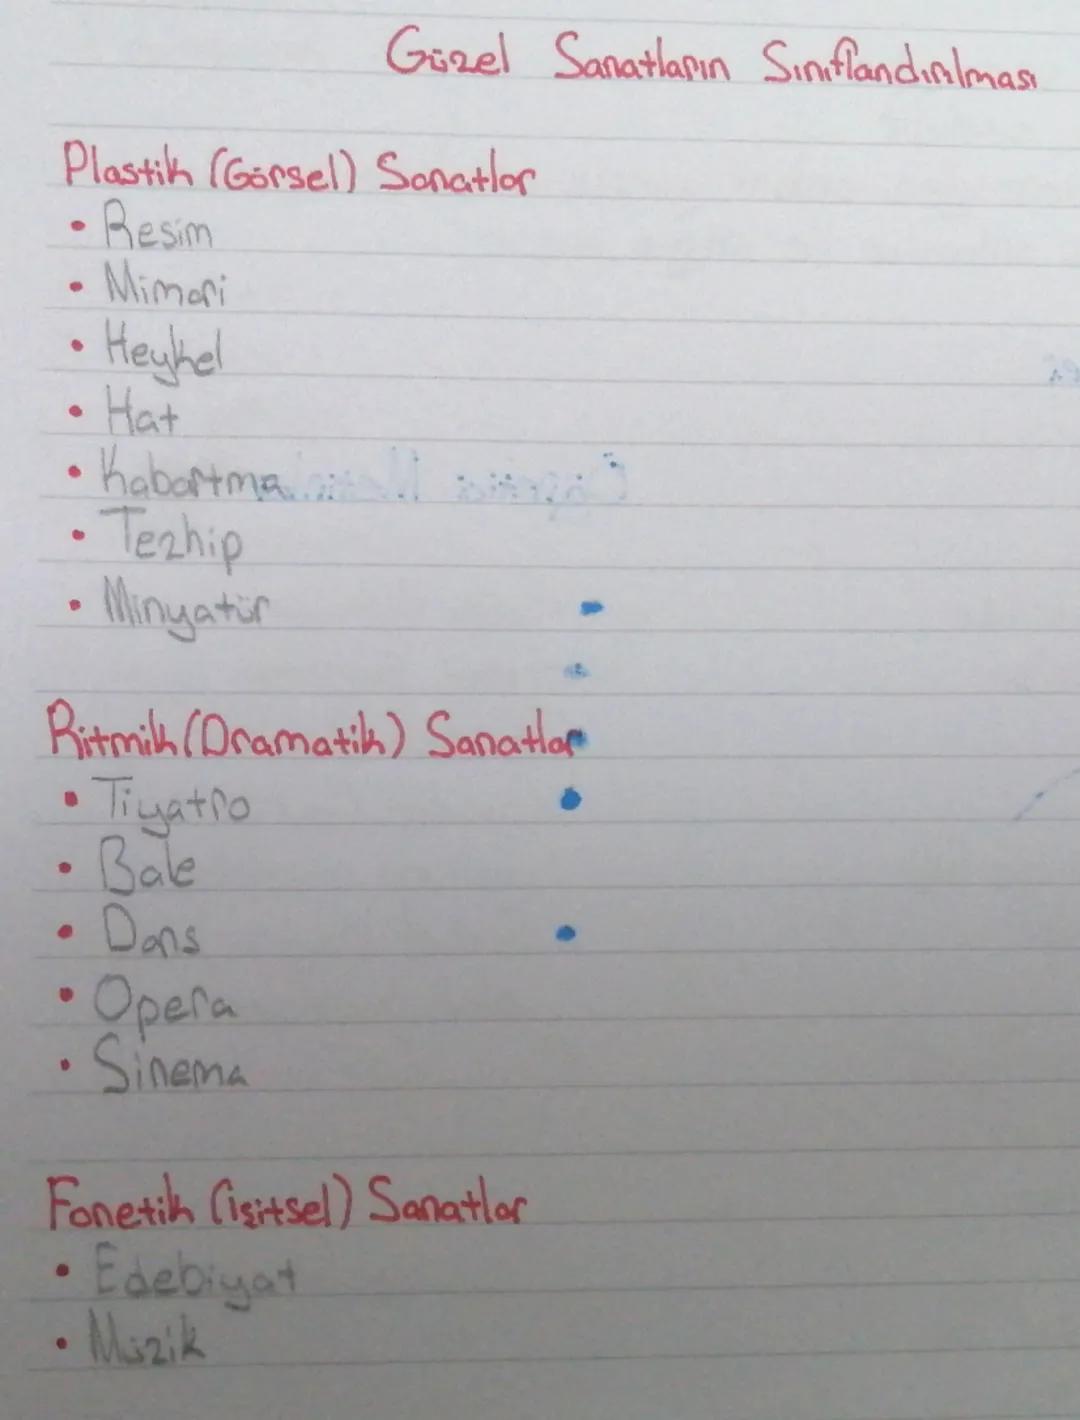 Güzel Sanatların Sınıflandırılması
Plastik (Görsel) Sanatlar
• Resim
• Mimari
• Heykel
• Hat
• Kabartma
• Tezhip
• Minyatür
Ritmik (Dramatik) Sanatlar
• Tiyatro
• Bale
• Dans
• Opera
• Sinema
Fonetik (işitsel) Sanatlar
• Edebiyat
• Müzik